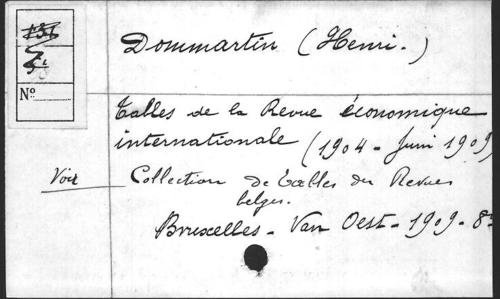 Dommartin (Henri.)
Nº
Tables de la Revue économique
internationale (1904 - Juin 1909)
Voir Collection de Tables des Revues
belges.
Bruxelles - Van Oest - 1909 - 8º